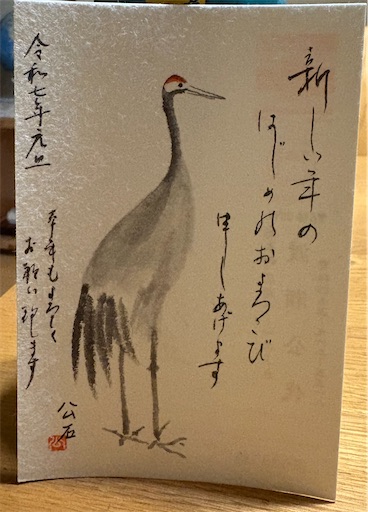 新しい年の
はじめのおよろこび
申しあげます
令和七年元旦
本年もよろしく
お願い申します
公石